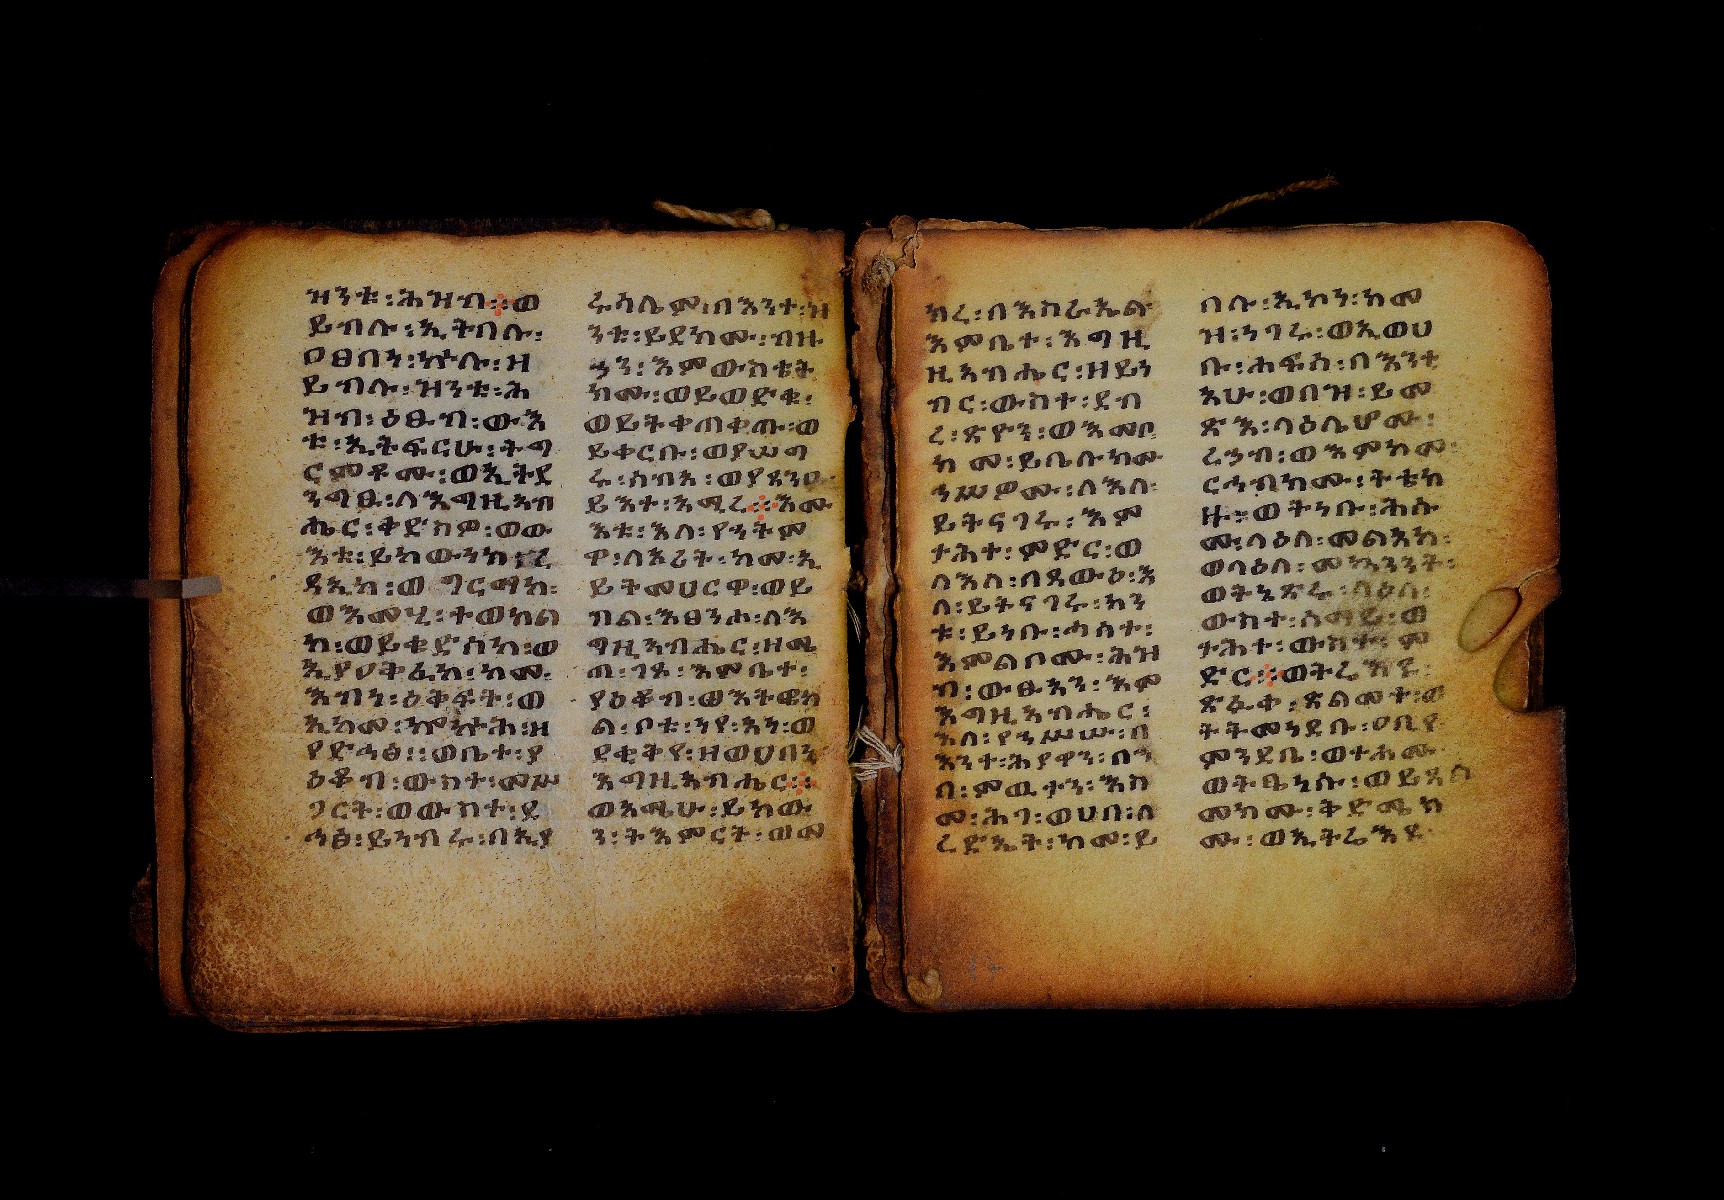 ዝንቱ፡ሕዝብ፨ወ
ይብሉ፡ኢትበሉ፡
ዐፀበነ፡ኵሉ፡ዘ
ይብሉ፡ዝንቱ፡ሕ
ዝብ፡ዕፁብ፡ውእ
ቱ፡ኢትፍርሁ፡ትግ
ርምቶሙ፡ወኢትደ
ንግፁ፡ለእግዚአብ
ሔር፡ቅድስዎ፡ወው
እቱ፡ይከውንከ፡ረ
ዳኢከ፡ወግርማከ፡
ወእመሂ፡ተወከል
ከ፡ወይቄድሰከ፡ወ
ኢያዐቅፈከ፡ከመ፡
እብነ፡ዕቅፍት፡ወ
ኢከመ፡ኰኵሕ፡ዘ
ያድኅፅ፡፡ወቤተ፡ያ
ዕቆብ፡ውስተ፡መሥ
ገርት፡ወውስተ፡ደ
ኅፅ፡ይነብሩ፡በኢየ
ሩሳሌም፡በእንተ፡ዝ
ንቱ፡ይደክሙ፡ብዙ
ኃን፡እምውስቴት
ክሙ፡ወይወድቁ፡
ወይትቀጠቀጡ፡ወ
ይቀርቡ፡ወያሠግ
ሩ፡ሰብአ፡ወያደንዑ
ይእተ፡አሚረ፨እሙ
እቱ፡እለ፡የኀትም
ዋ፡ለኦሪት፡ከመ፡ኢ
ይትመሀርዋ፡ወይ
ብል፡እፀንሖ፡ለእ
ግዚአብሔር፡ዘሜ
ጠ፡ገጾ፡እምቤተ፡
ያዕቆብ፡ወእትዌከ
ል፡ቦቱ፡ነየ፡አነ፡ወ
ደቂቅየ፡ዘወሀበኒ
እግዚአብሔር፨
ወእሜሁ፡ይከው
ን፡ትእምርት፡ወመ
ክረ፡በእስራኤል
እምቤተ፡እግዚ
ዚአብሔር፡ዘይነ
ብር፡ውስተ፡ደብ
ረ፡ጽዮን፡ወእመቦ
ከመ፡ይቤሉክሙ
ኅሥዎሙ፡ለእለ፡
ይትናገሩ፡እም
ታሕተ፡ምድር፡ወ
ለእለ፡በጻውዕ፡እ
ለ፡ይትናገሩ፡ከን
ቱ፡ይነቡ፡ሓሰተ፡
እምልቦሙ፡ሕዝ
ብ፡ውፁአን፡እም
እግዚአብሔር፡
እለ፡የኀሥሡ፡በ
እንተ፡ሕያዋን፡በኀ
በ፡ምዉታን፡እስ
መ፡ሕገ፡ወሀበ፡ለ
ረድኤት፡ከመ፡ይ
በሉ፡ኢኮነ፡ከመ
ዝ፡ነገሩ፡ወኢወሀ
ቡ፡ሐፍስ፡በእንቲ
አሁ፡ወበዝ፡ይመ
ጽእ፡ላዕሌሆሙ፡
ረኀብ፡ወእምከመ
ርኅብክሙ፡ትቴክ
ዙ፡ወትነቡ፡ሕሱ
ሙ፡ላዕለ፡መልአክ፡
ወላዕለ፡መኳንንት፡
ወትኔጽሩ፡ላዕለ፡
ውስተ፡ሰማይ፡ወ
ታሕተ፡ውስተ፡ም
ድር፨ወትሬእዩ፡
ጽፉቀ፡ጽልመተ፡ወ
ትትመነደቡ፡ዐቢየ
ምንዳቤ፡ወተሐሙ
ወትዔኒሱ፡ወይጸል
መክሙ፡ቅድሜክ
ሙ፡ወኢትሬእዩ